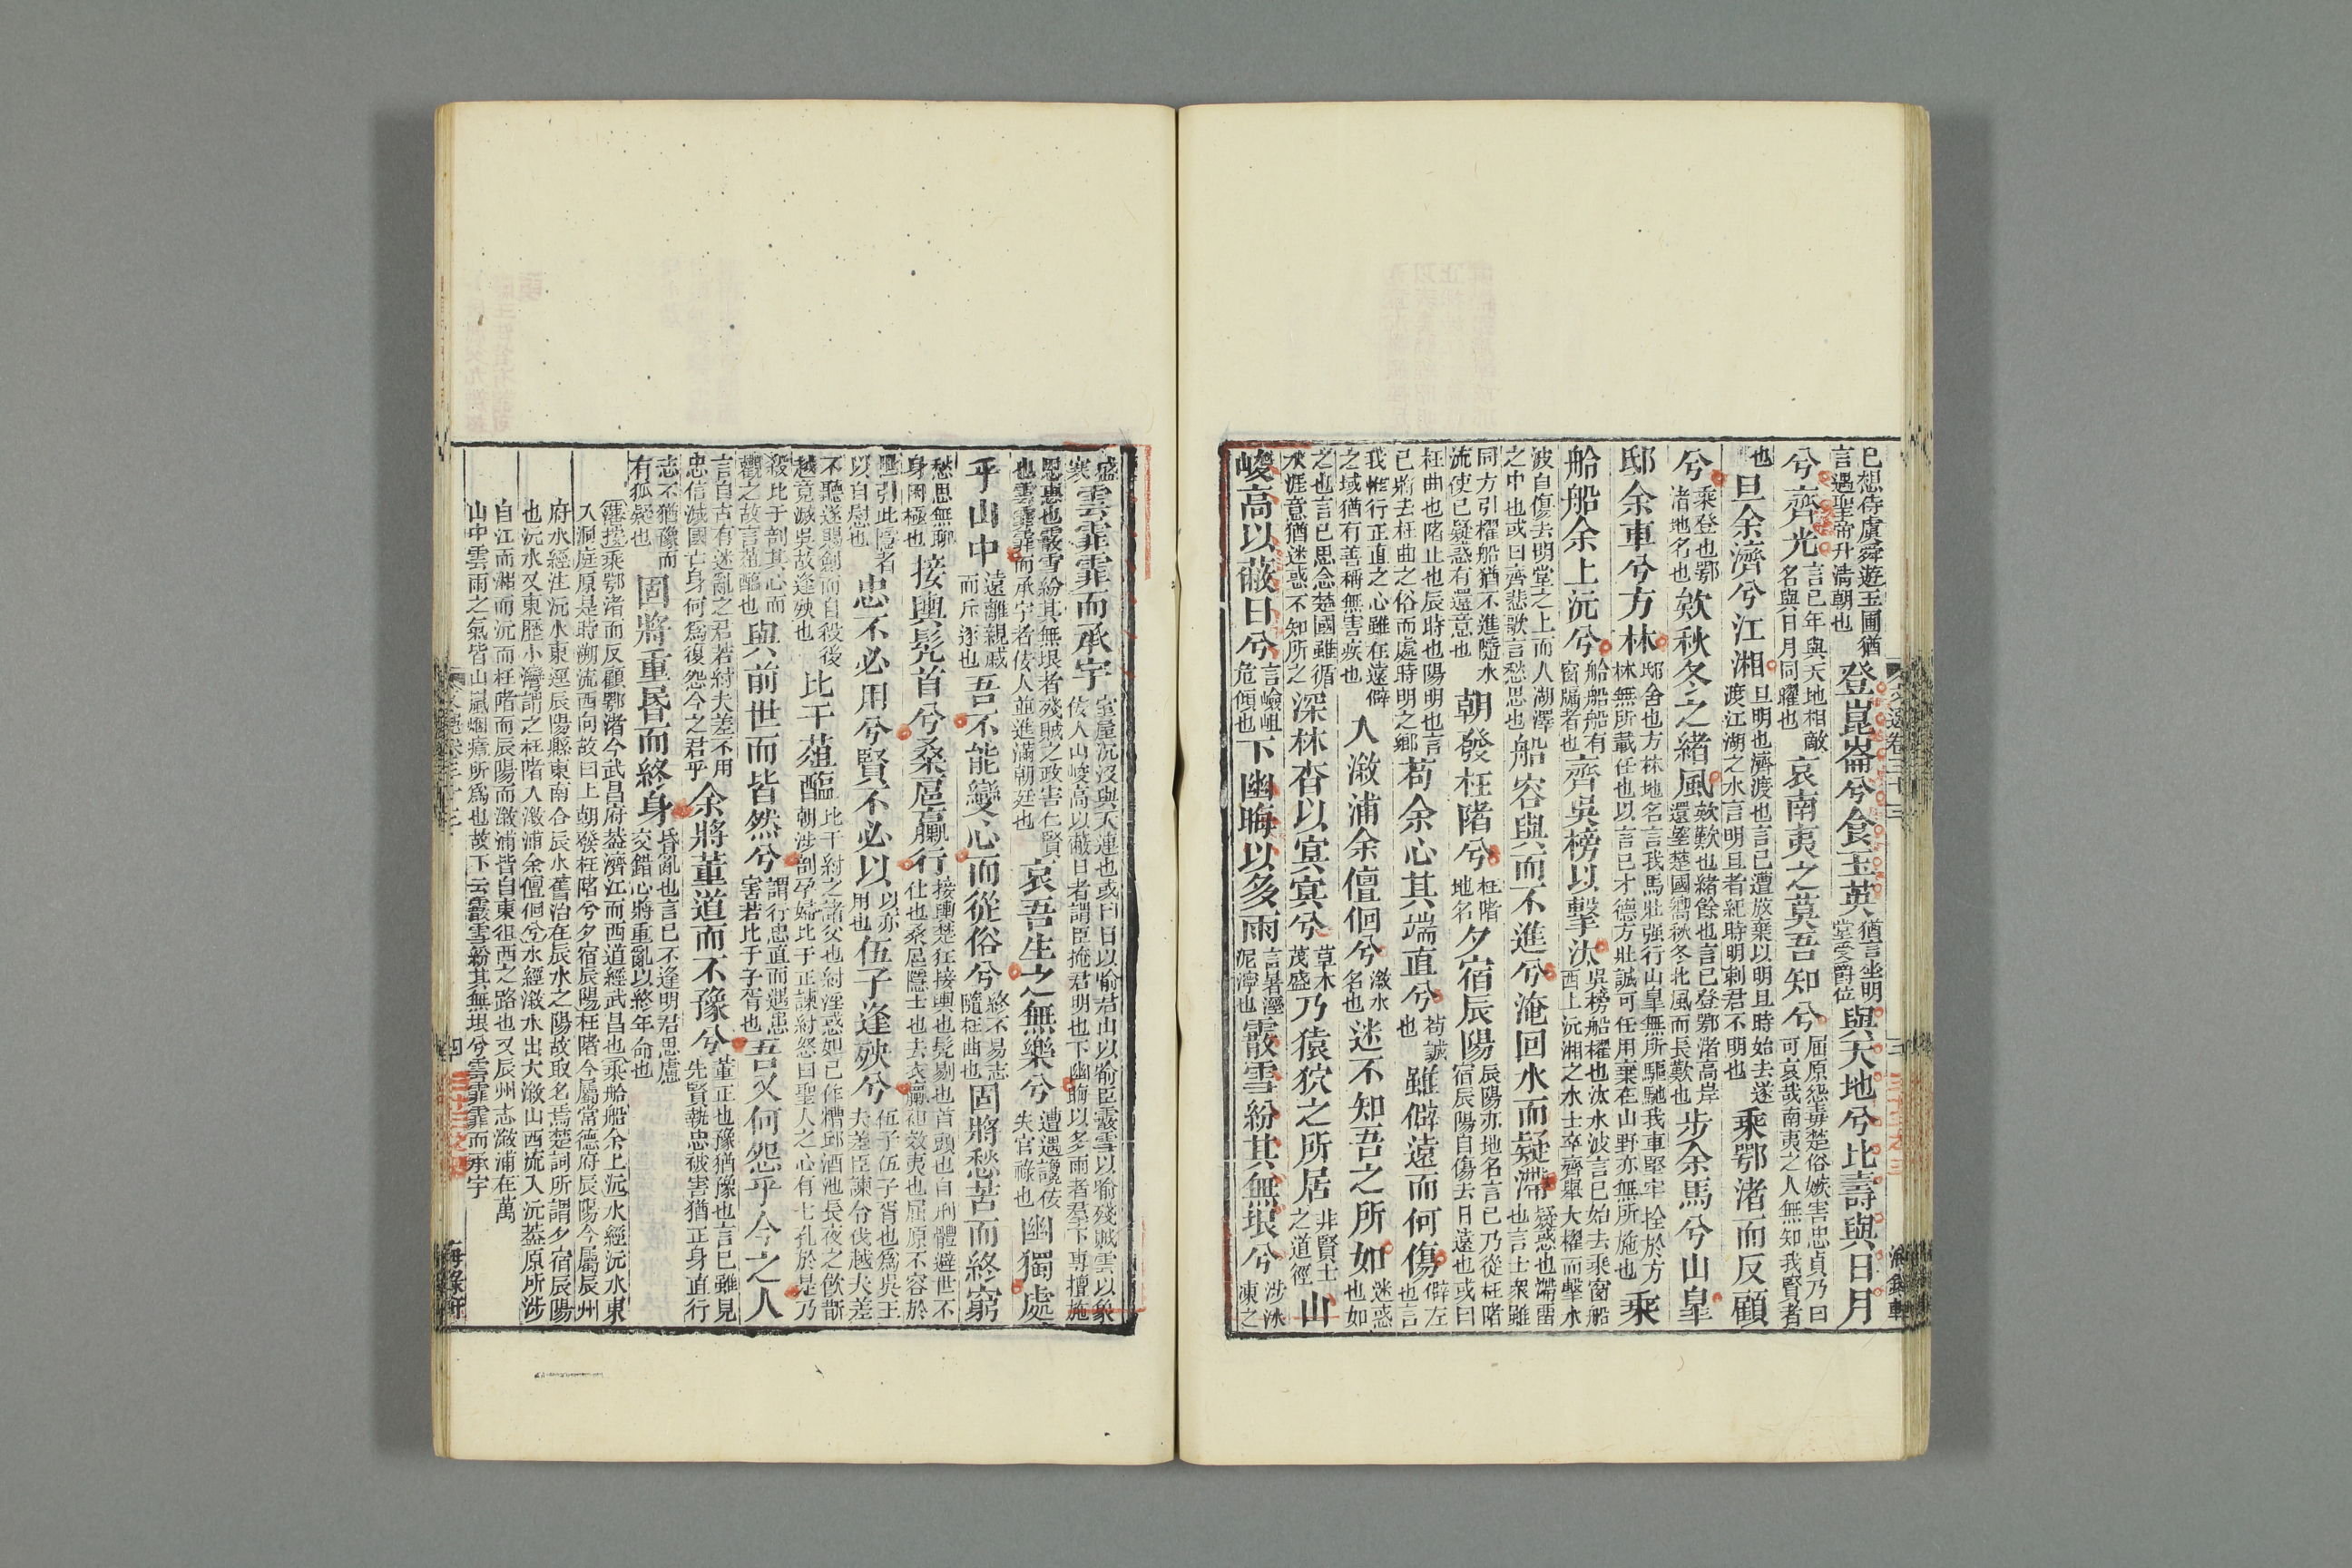 已想侍虞舜遊玉圃猶
言遇聖帝升清朝也
登崑崙兮食玉英
猶言坐明
堂受爵位
與天地兮比壽與日月
兮齊光
言己年與天地相敵
名與日月同曜也
哀南夷之莫吾知兮
屈原怨毒楚俗嫉害忠貞乃曰
可哀哉南夷之人無知我賢者
也
旦余濟兮江湘
旦明也濟渡也言己遭放棄以明旦時始去遂
渡江湖之水言明旦者紀時明刺君不明也
乘鄂渚而反顧
兮
乘登也鄂
渚地名也
欸秋冬之緒風
欸歎也緒餘也言己登鄂渚高岸
還望楚國嚮秋冬北風而長歎也
步余馬兮山皐
邸余車兮方林
邸舍也方林地名言我馬壯强行山皐無所驅馳我車堅牢拴於方
林無所載任也以言己才德方壯誠可任用棄在山野亦無所施也
乘
舲船余上沅兮
舲船船有
窗牖者也
齊吳榜以擊汰
吳榜船櫂也汰水波言己始去乘窗船
西上沅湘之水士卒齊舉大櫂而擊水
波自傷去明堂之上而入湖澤
之中也或曰齊悲歌言愁思也
船容與而不進兮淹回水而疑滯
疑惑也滯留
也言士衆雖
同方引櫂船猶不進隨水
流使己疑惑有還意也
朝發枉陼兮
枉陼
地名
夕宿辰陽
辰陽亦地名言己乃從枉陼
宿辰陽自傷去日遠也或曰
枉曲也陼止也辰時也陽明也言
己將去枉曲之俗而處時明之鄉
苟余心其端直兮
苟誠
也
雖僻遠而何傷
僻左
也言
我惟行正直之心雖在遠僻
之域猶有善稱無害疾也
入漵浦余儃佪兮
漵水
名也
迷不知吾之所如
迷惑
也如
之也言己思念楚國雖循
水涯意猶迷惑不知所之
深林杳以冥冥兮
草木
茂盛
乃猿狖之所居
非賢士
之道徑
山
峻高以蔽日兮
言嶮岨
危傾也
下幽晦以多雨
言暑溼
泥濘也
霰雪紛其無垠兮
涉冰
凍之
盛
寒
雲霏霏而承宇
室屋沉沒與天連也或曰日以喻君山以喻臣霰雪以喻殘賊雲以象
佞人山峻高以蔽日者謂臣掩君明也下幽晦以多雨者羣下專擅施
恩惠也霰雪紛其無垠者殘賊之政害仁賢
也雲霏霏而承宇者佞人並進滿朝廷也
哀吾生之無樂兮
遭遇讒佞
失官祿也
幽獨處
乎山中
遠離親戚
而斥逐也
吾不能變心而從俗兮
終不易志
隨枉曲也
固將愁苦而終窮
愁思無聊
身困極也
接輿髡首兮桑扈臝行
接輿楚狂接輿也髡剔也首頭也自刑體避世不
仕也桑扈隱士也去衣臝裎效夷也屈原不容於
世引此隱者
以自慰也
忠不必用兮賢不必以
以亦
用也
伍子逢殃兮
伍子伍子胥也爲吳王
夫差臣諫令伐越夫差
不聽遂賜劍而自殺後
越竟滅吳故逢殃也
比干葅醢
比干紂之諸父也紂淫惑妲己作糟邱酒池長夜之飲斮
朝涉剖孕婦比干正諫紂怒曰聖人之心有七孔於是乃
殺比干剖其心而
觀之故言葅醢也
與前世而皆然兮
謂行忠直而遇患
害若比干子胥也
吾又何怨乎今之人
言自古有迷亂之君若紂夫差不用
忠信滅國亡身何爲復怨今之君乎
余將董道而不豫兮
董正也豫猶豫也言己雖見
先賢執忠被害猶正身直行
志不猶豫而
有狐疑也
固將重昏而終身
昏亂也言己不逢明君思慮
交錯心將重亂以終年命也
藩按乘鄂渚而反顧鄂渚今武昌府葢濟江而西道經武昌也乘舲船余上沅水經沅水東
入洞庭原是時溯流西向故曰上朝發枉陼兮夕宿辰陽枉陼今屬常德府辰陽今屬辰州
府水經注沅水東逕辰陽縣東南合辰水舊治在辰水之陽故取名焉楚詞所謂夕宿辰陽
也沅水又東歷小灣謂之枉陼入漵浦余儃佪兮水經漵水出大漵山西流入沅葢原所涉
自江而湘而沅而枉陼而辰陽而漵浦皆自東徂西之路也又辰州志漵浦在萬
山中雲雨之氣皆山嵐烟瘴所爲也故下云霰雪紛其無垠兮雲霏霏而承宇
四
海錄軒